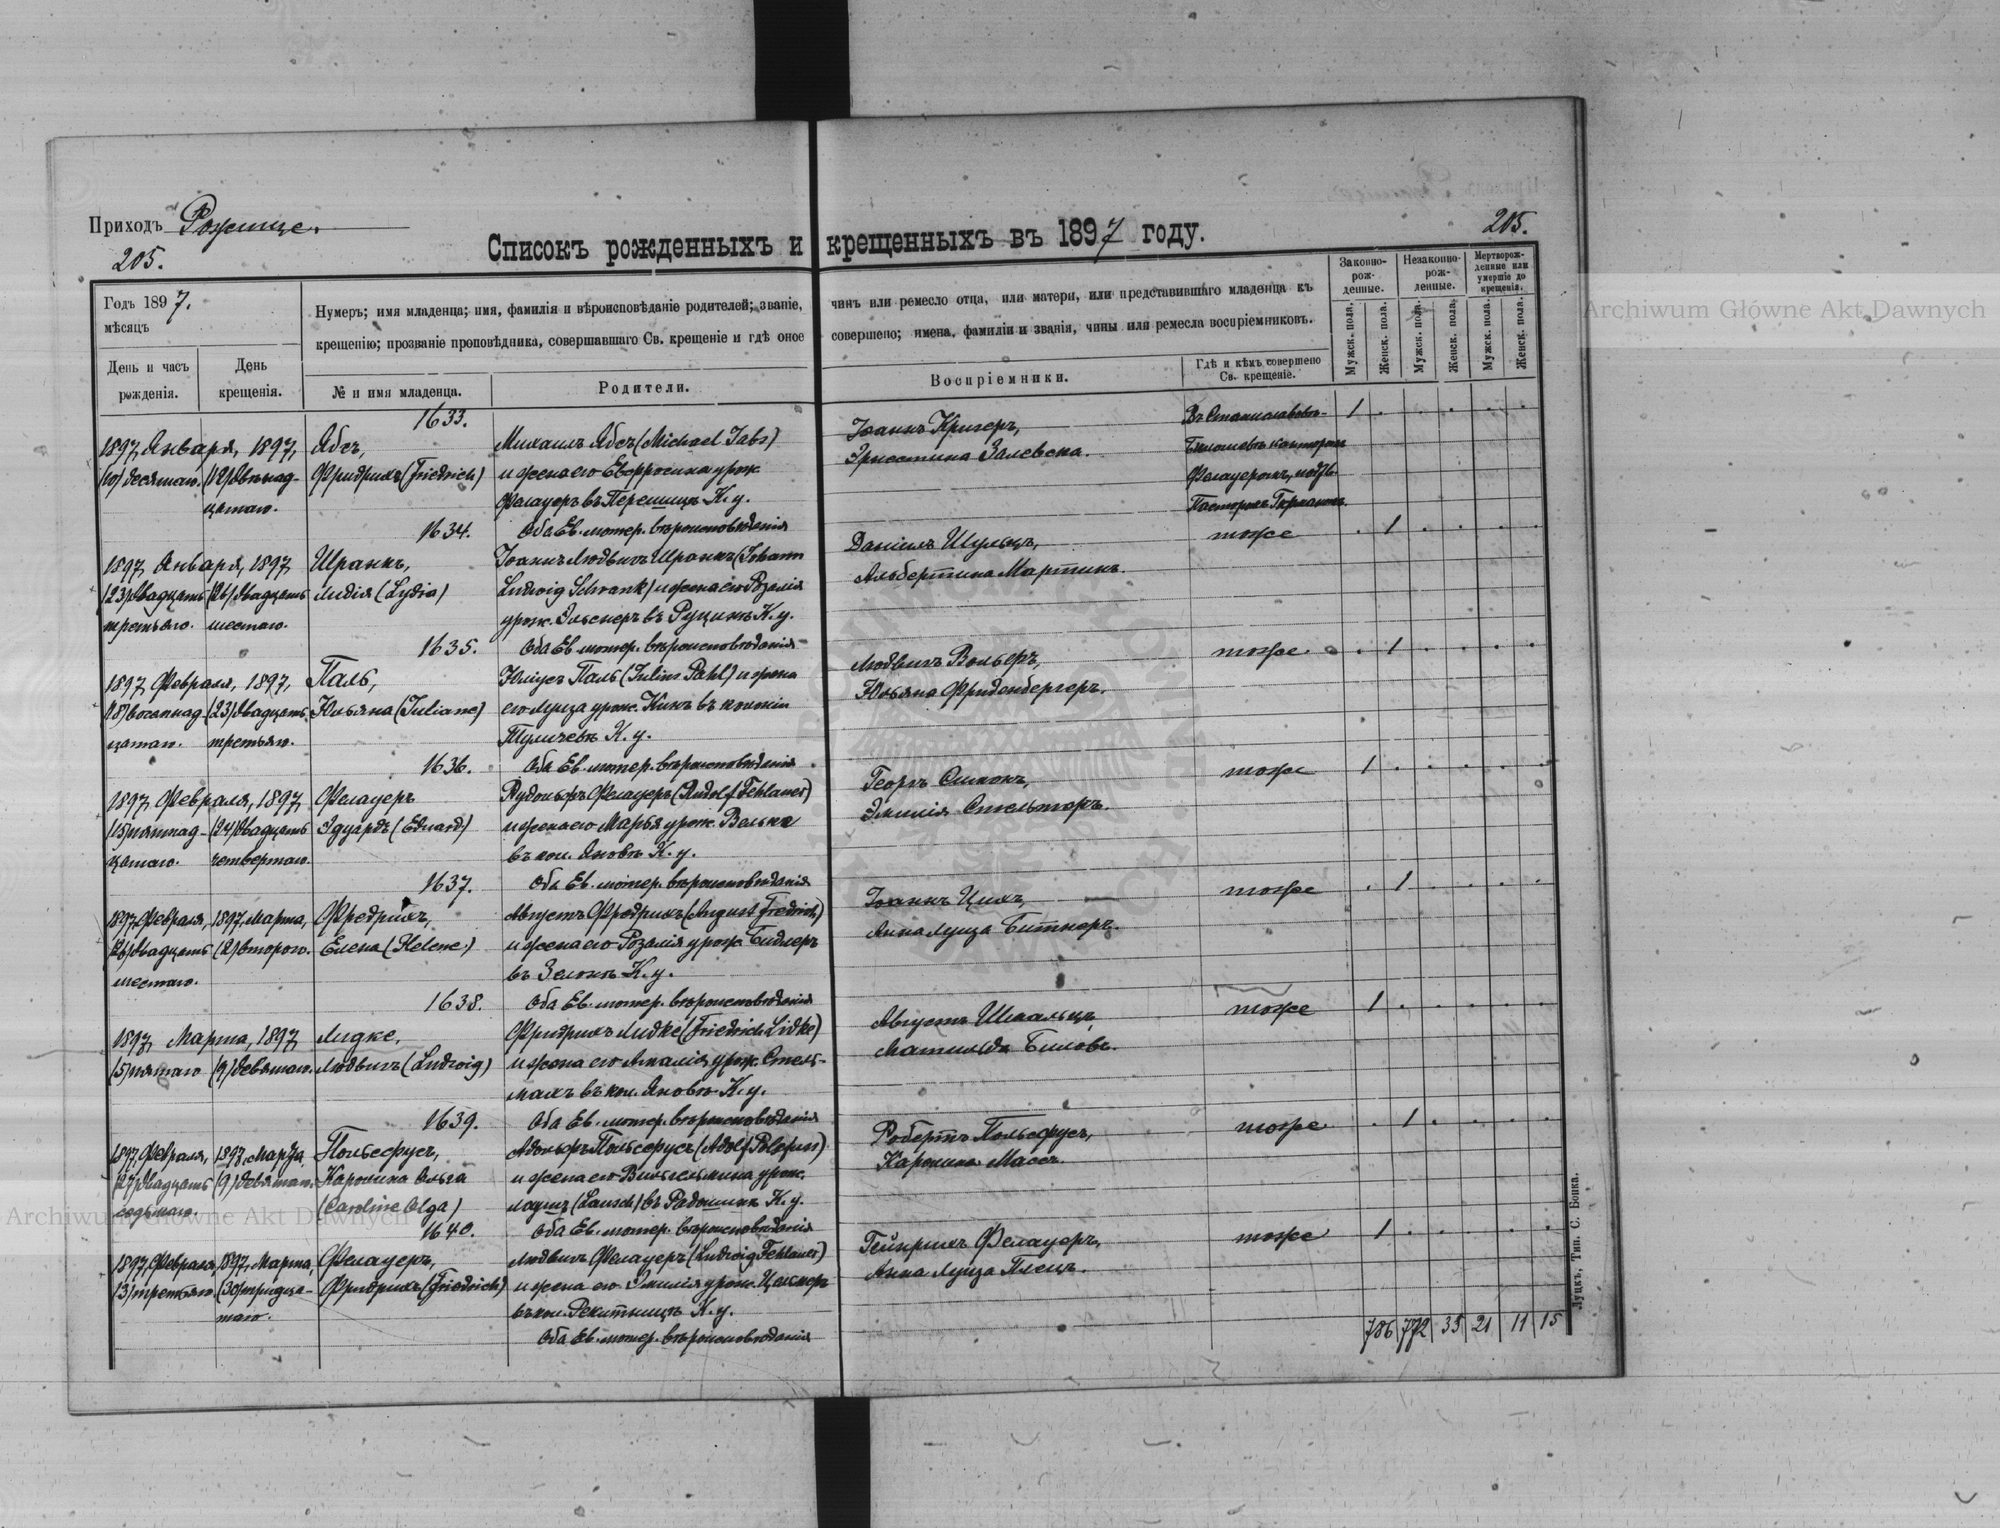 Приходъ Рожище.
205.
Списокъ рожденныхъ и крещенныхъ въ 1897 году.
205.
Годъ 1897.
мѣсяцъ
День и часъ рожденія.
День крещенія.
Нумеръ; имя младенца; имя, фамилія и вѣроисповѣданіе родителей; званіе, чинъ или ремесло отца, или матери, или представившаго младенца къ
крещенію; прозваніе проповѣдника, совершавшаго Св. крещеніе и гдѣ оное совершено; имена, фамиліи и званія, чины или ремесла воспріемниковъ.
№ и имя младенца.
Родители.
Воспріемники.
Гдѣ и кѣмъ совершено Св. крещеніе.
Законно-рожденные.
Незаконно-рожденные.
Мертворожденные или умершіе до крещенія.
Мужск. пола.
Женск. пола.
Мужск. пола.
Женск. пола.
Мужск. пола.
Женск. пола.
1633.
1897, Января, 1897,
(10) десятаго. (12) двѣнад-
цатаго.
Ябсъ,
Фридрихъ (Friedrich)
Михаилъ Ябсъ (Michael Jabs)
и жена его Евфросина урож.
Фелауеръ въ К. у.
Оба Ев. лютер. вѣроисповѣданія
Іоаннъ Кригеръ,
Эрнестина Залевска.
Пасторъ
1
1634.
1897, Января, 1897,
(23) двадцать (26) двадцать
третьяго. шестаго.
Шранкъ,
Лидія (Lydia)
Іоаннъ Людвигъ Шранкъ (Johann
Ludwig Schrank) и жена его Розалія
урож. Эльснеръ въ К. у.
Оба Ев. лютер. вѣроисповѣданія
Даніилъ Шульцъ,
Альбертина Мартинъ.
тоже
1
1635.
1897, Февраля, 1897,
(18) восемнад- (23) двадцать
цатаго. третьяго.
Паль,
Юльяна (Juliane)
Юліусъ Паль (Julius Pahl) и жена
его Луиза урож. въ колоніи
К. у.
Оба Ев. лютер. вѣроисповѣданія
Людвигъ Вольфъ,
Юльяна Фриденбергеръ.
тоже
1
1636.
1897, Февраля, 1897,
(15) пятнад- (24) двадцать
цатаго. четвертаго.
Фелауеръ
Эдуардъ (Eduard)
Рудольфъ Фелауеръ (Rudolf Fehlauer)
и жена его Марья урож.
въ кол. Яновкѣ К. у.
Оба Ев. лютер. вѣроисповѣданія
Георгъ Симонъ,
Эмилія Стельтеръ.
тоже
1
1637.
1897, Февраля, 1897, Марта,
(26) двадцать (2) второго.
шестаго.
Фредрихъ,
Елена (Helene)
Августъ Фредрихъ (August Fredrich)
и жена его Розалія урож. Бидлеръ
въ К. у.
Оба Ев. лютер. вѣроисповѣданія
Іоаннъ
Анна Луиза Битнеръ.
тоже
1
1638.
1897, Марта, 1897,
(5) пятаго (9) девятаго.
Лидке,
Людвигъ (Ludwig)
Фридрихъ Лидке (Friedrich Lidke)
и жена его Амалія урож. Стель-
махъ въ кол. Яновкѣ К. у.
Оба Ев. лютер. вѣроисповѣданія
Августъ Шмальцъ,
Матильда Биловъ.
тоже
1
1639.
1897, Февраля, 1897, Марта,
(27) двадцать (9) девятаго.
седьмаго.
Польсфусъ,
Каролина Ольга
(Caroline Olga)
Адольфъ Польсфусъ (Adolf Polsfuss)
и жена его Вильгельмина урож.
Лаушъ (Lausch) въ К. у.
Оба Ев. лютер. вѣроисповѣданія
Робертъ Польсфусъ,
Каролина Массъ.
тоже
1
1640.
1897, Февраля, 1897, Марта,
(3) третьяго. (30) тридца-
таго.
Фелауеръ,
Фридрихъ (Friedrich)
Людвигъ Фелауеръ (Ludwig Fehlauer)
и жена его Эмилія урож.
въ кол. К. у.
Оба Ев. лютер. вѣроисповѣданія
Гейнрихъ Фелауеръ,
Анна Луиза Плецъ.
тоже
1
786 772 35 21 11 15
Луцкъ, Тип. С. Бонка.
Archiwum Główne Akt Dawnych
Archiwum Główne Akt Dawnych